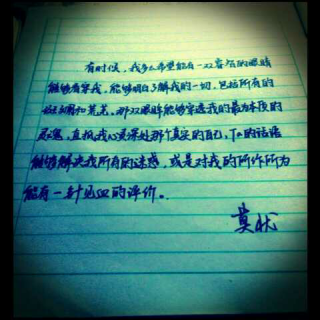 有时候，我多么希望能有一双睿智的眼睛
能够看穿我，能够明白了解我的一切，包括所有的
斑斓和荒芜。那双眼眸能够穿透我的最为本质的
灵魂，直抵我心灵深处那个真实的自己，Ta的话语
能够解决我所有的迷惑，或是对我的所作所为
能有一针见血的评价。
莫状